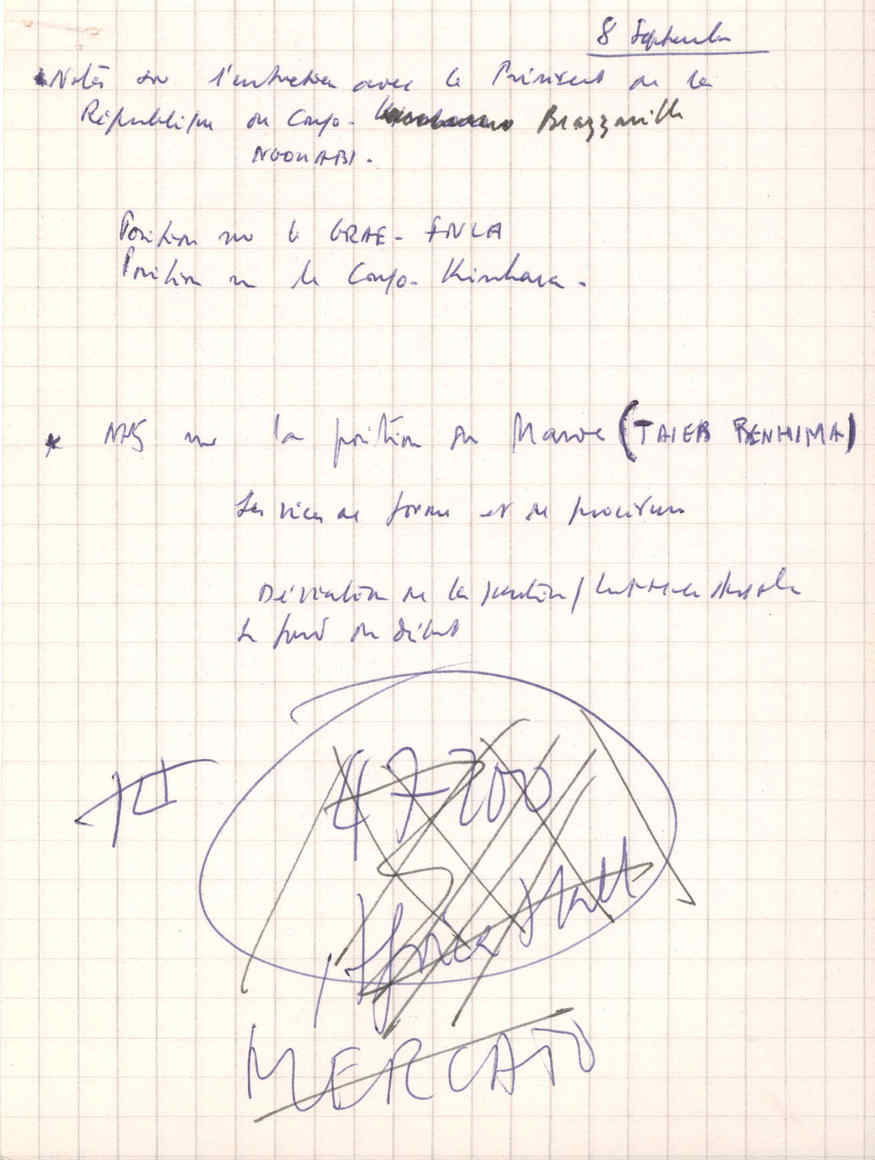 8 Septembre
Notes sur l'entretien avec le Président de la
République du Congo- Brazzaville
NGOUABI.
Position sur le GRAE- FNLA
Position sur le Congo- Kinshasa.
* sur la position du Maroc (TAIEB BENHIMA)
Les vices de forme et de procédure
Déviation de la question /
Le fond du débat
III
47-200
Africa Hall
MERCATO